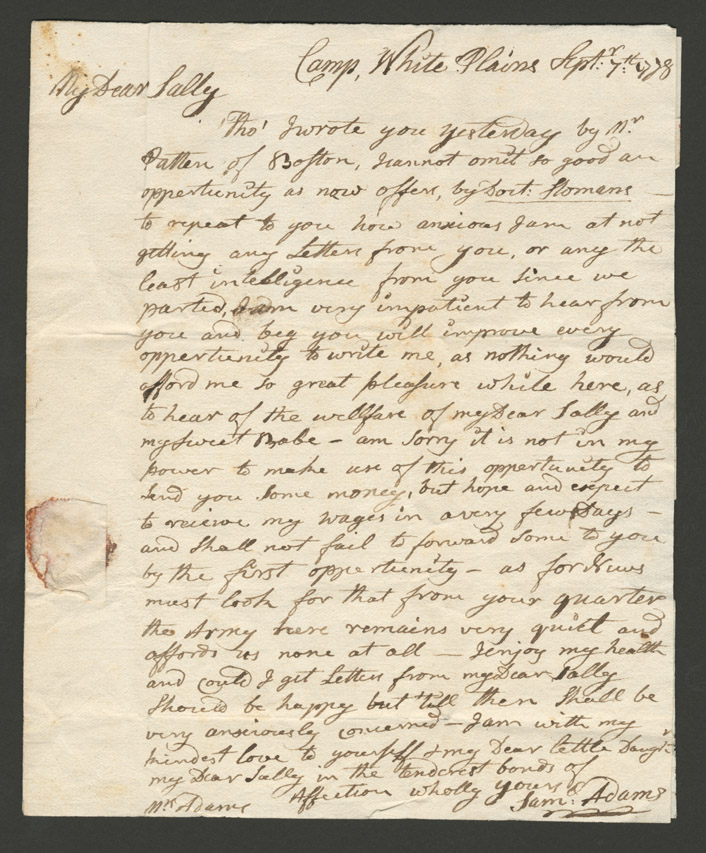 Camp, White Plains Septr. 7th. 1778
My Dear Sally
Tho' I wrote you yesterday by Mr
Patten of Boston, I cannot omit so good an
oppertunity as now offers, by Doct:
to repeat to you how anxious I am at not
getting any Letters from you, or any the
least intelligence from you since we
parted, I am very impatient to hear from
you and beg you will improve every
oppertunity to write me, as nothing would
afford me so great pleasure while here, as
to hear of the wellfare of my Dear Sally and
my sweet Babe – am sorry it is not in my
power to make use of this oppertunity to
send you some money, but hope and expect
to recieve my wages in a very few Days –
and shall not fail to forward some to you
by the first oppertunity – as for News
must look for that from your quarter
the Army here remains very quiet and
affords us none at all – I enjoy my health
and could I get Letters from my Dear Sally
should be happy but till then shall be
very anxiously concerned – I am with my
kindest love to yourself & my Dear little Daughr.
my Dear Sally in the tenderest bonds of
Affection wholly yours
Saml. Adams
Mrs Adams